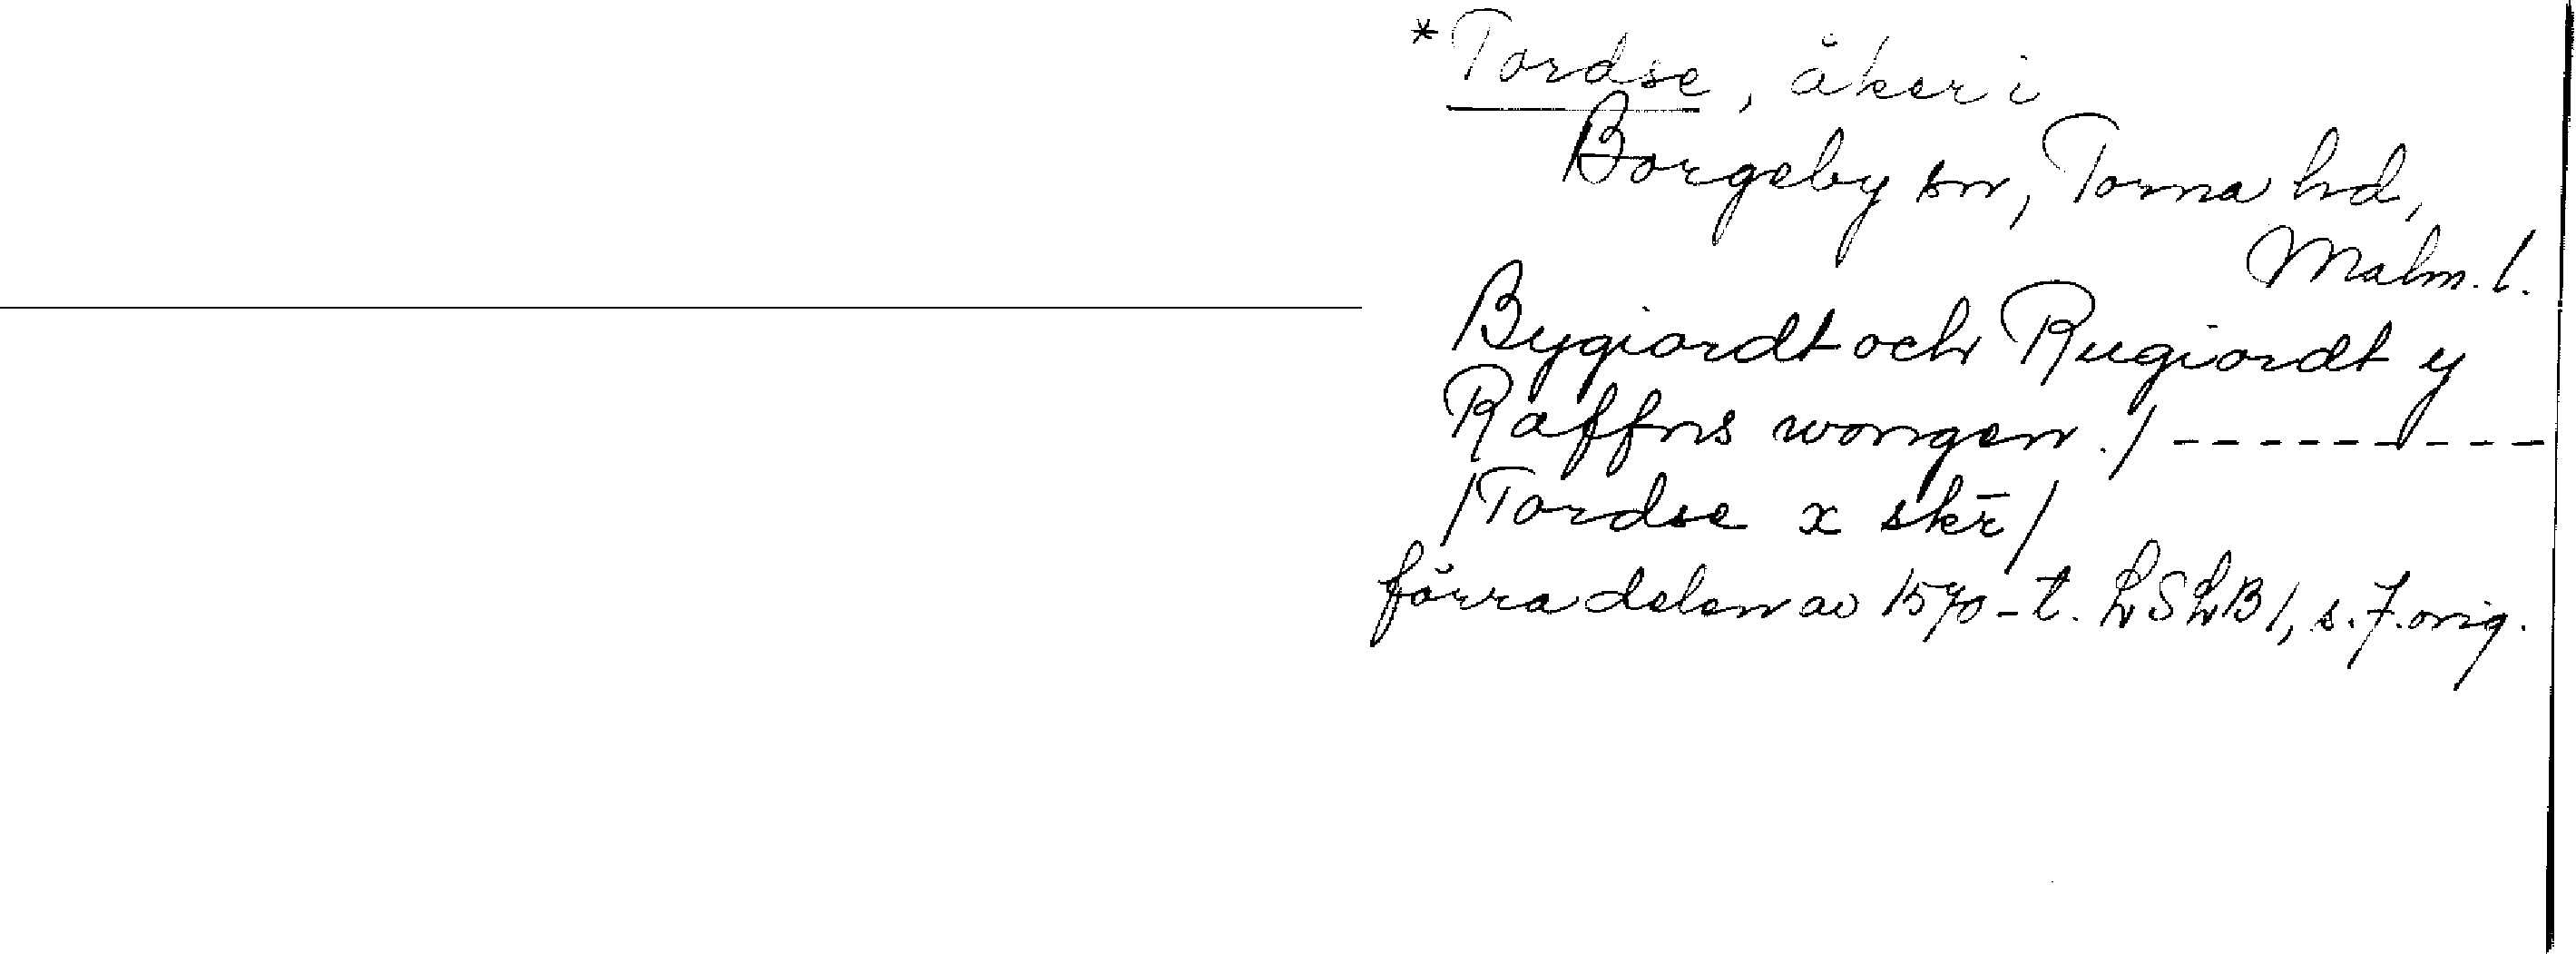 *Tordse, åker i
Borgeby sn, Torna hd,
Malm. l.
Bygiordt och Rugiordt y
Raffns wongen. / - - - - - - - - -
/Tordse x skr̄/
förra delen av 1570-t. LSLB 1, s. 7. orig.